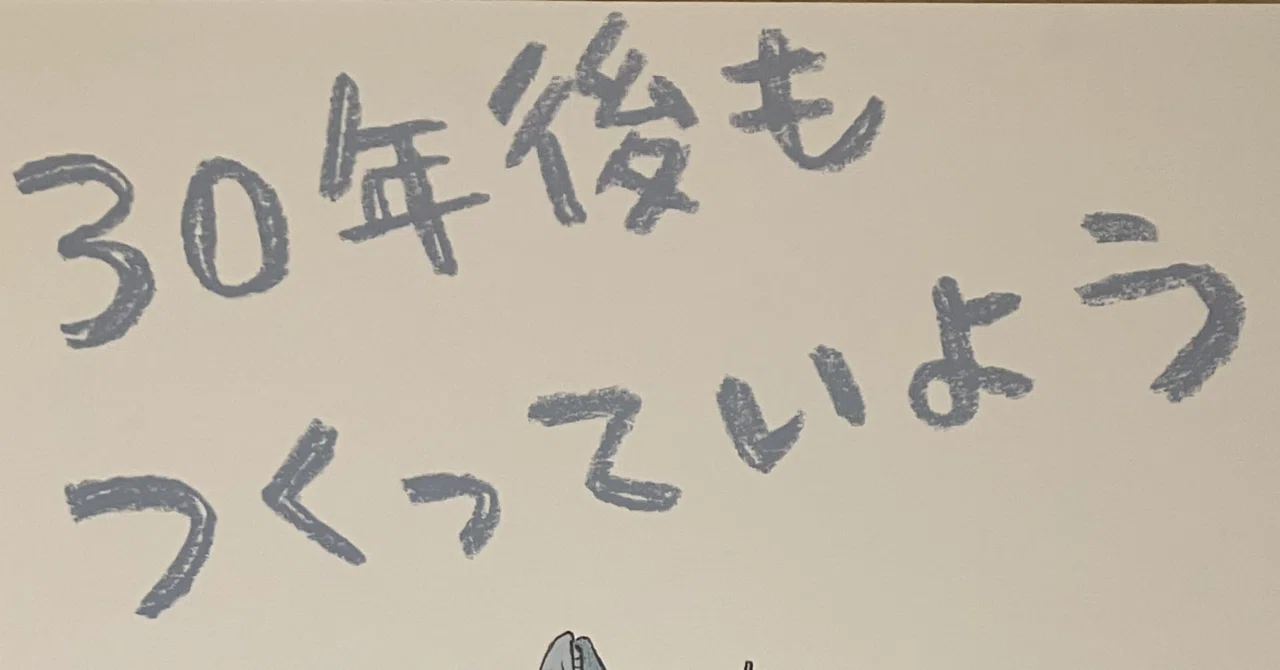 30年後も
つくっていよう